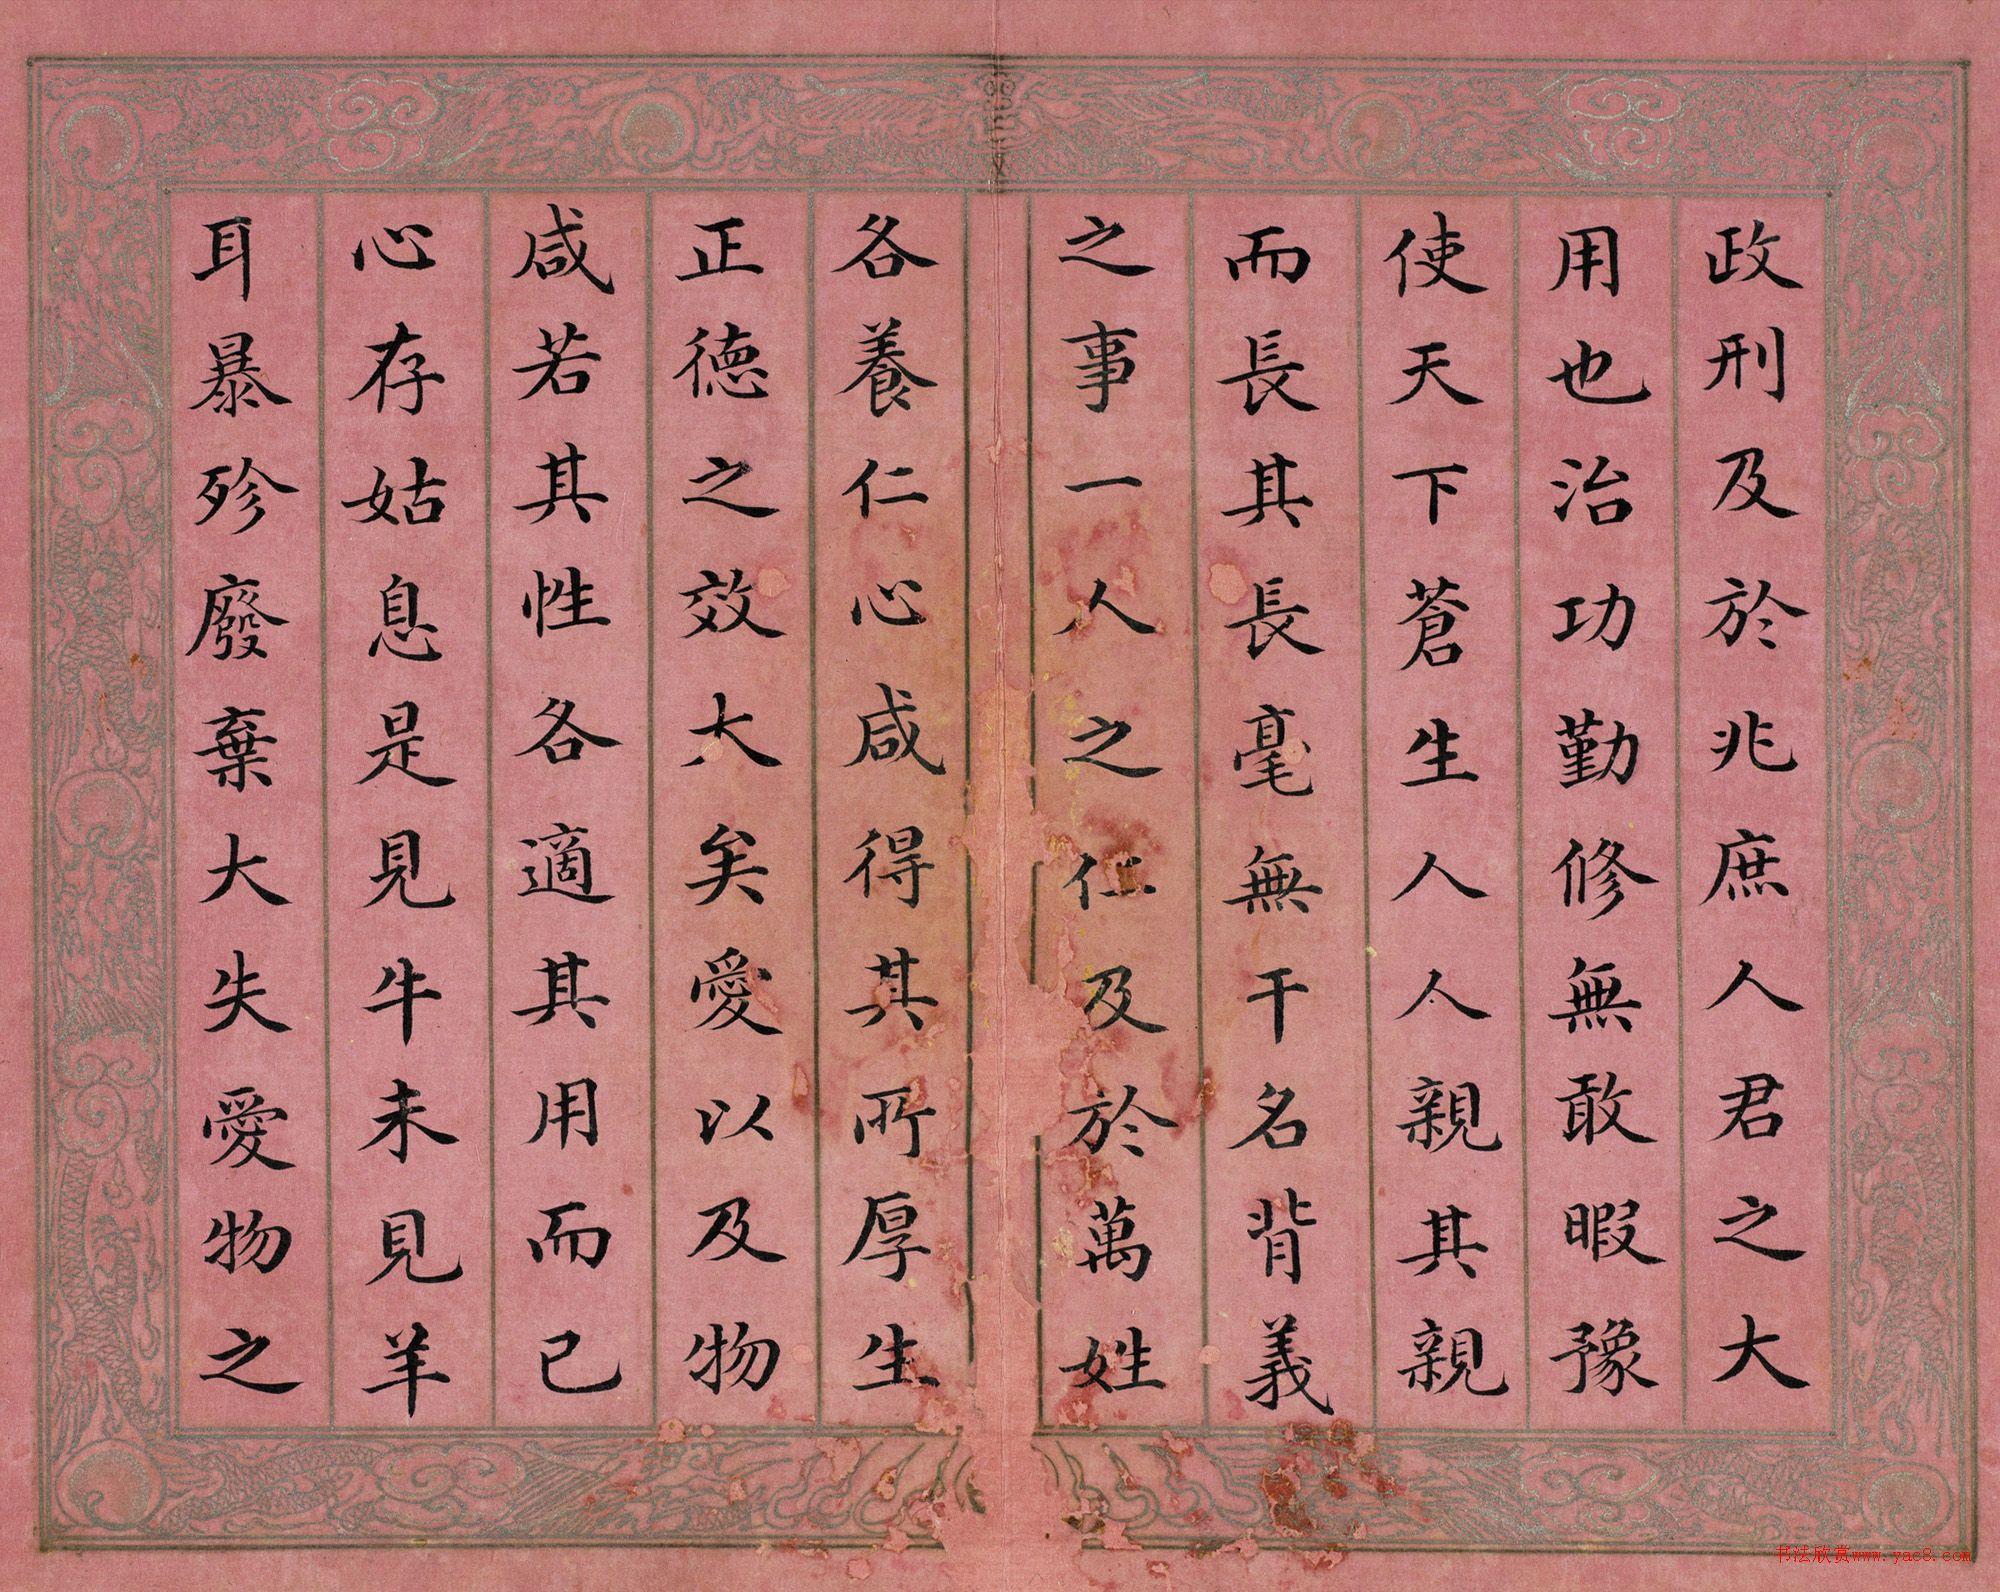 政刑及於兆庶人君之大
用也治功勤修無敢暇豫
使天下蒼生人人親其親
而長其長毫無干名背義
之事一人之仁及於萬姓
各養仁心咸得其所厚生
正德之效大矣愛以及物
咸若其性各適其用而已
心存姑息是見牛未見羊
耳暴殄廢棄大失愛物之
书法欣赏www.yac8.com